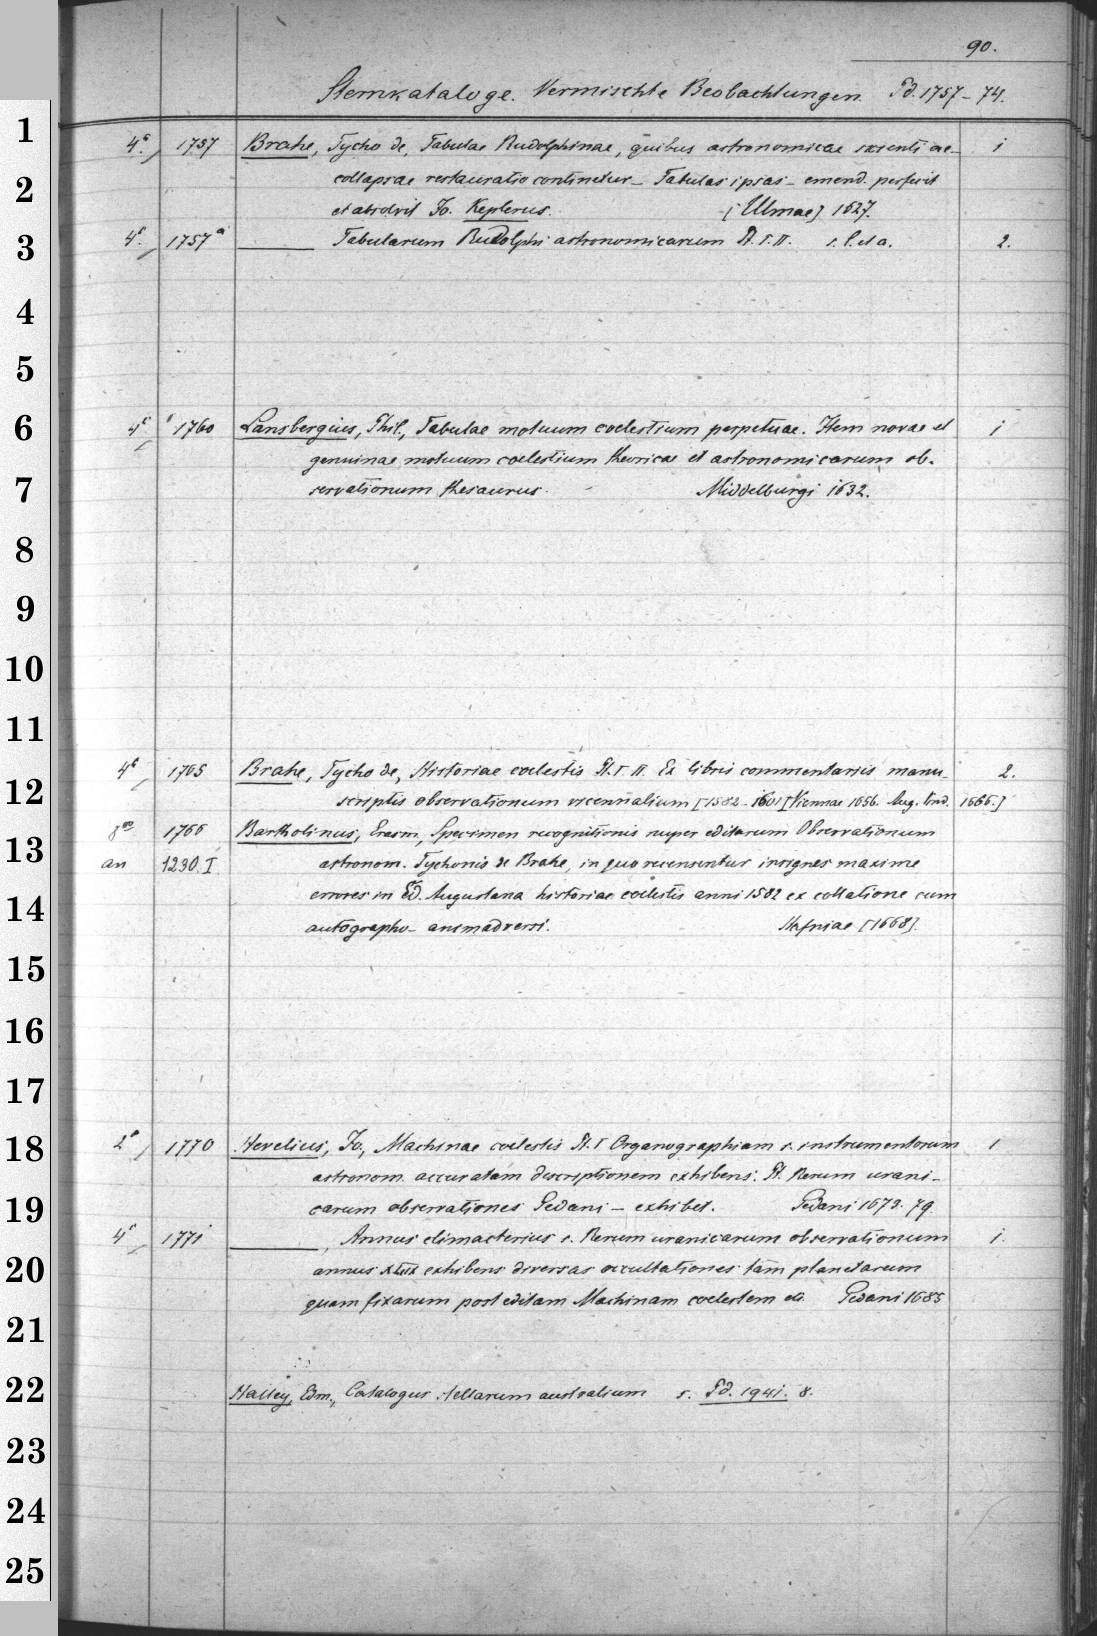 90.
Sternkataloge. Vermischte Beobachtungen. Pd. 1757–74.
1
4° 1757 Brahe, Tycho de, Tabulae Rudolphinae, quibus astronomicae scienti ae_ 1
2
collapsae restauratio continetur_ Tabulas ipsas_ emend. perfecit
et absolvit Jo. Keplerus. [Ulmae] 1627.
3
4° 1757a ——— Tabularum Rudolphi astronomicarum Pt. I. II. s. l. et a. 2.
4
5
6
4° 1760 Lansbergius, Phil., Tabulae motuum coelestium perpetuae. Item novae et 1
genuinae motuum coelestium theoricae et astronomicarum ob-
7
servationum thesaurus. Middelburgi 1632.
8
9
10
11
4° 1765 Brahe, Tycho de, Historiae coelestis Pt. I. II. Ex libris commentariis manu_ 2.
12
scriptis observationum vicennalium [1582–1601] [Viennae 1656. Aug. Vind. 1666.]
8vo 1766 Bartholinus, Erasm., Specimen recognitionis nuper editarum Observationum
13
an 1230.I astronom. Tychonis de Brahe, in quo recensentur insignes maxime
14
errores in Ed. Augustana historiae coelestis anni 1582 ex collatione cum
autographo_ animadversi. Hafniae [1668].
15
16
17
18
2° 1770 Hevelius, Jo., Machinae coelestis Pt. I Organographiam s. instrumentorum 1
astronom. accuratam descriptionem exhibens. Pt. Rerum urani-
19
carum observationes Gedani – exhibet. Gedani 1673. 79.
4° 1771 ———, Annus climacterius s. Rerum uranicarum observationum 1.
20
annus exhibens diversas occultationes tam planetarum
quam fixarum post editam Machinam coelestem etc. Gedani 1685
21
22
Halley, Edm., Catalogus stellarum australium s. Pd. 1941. 8.
23
24
25